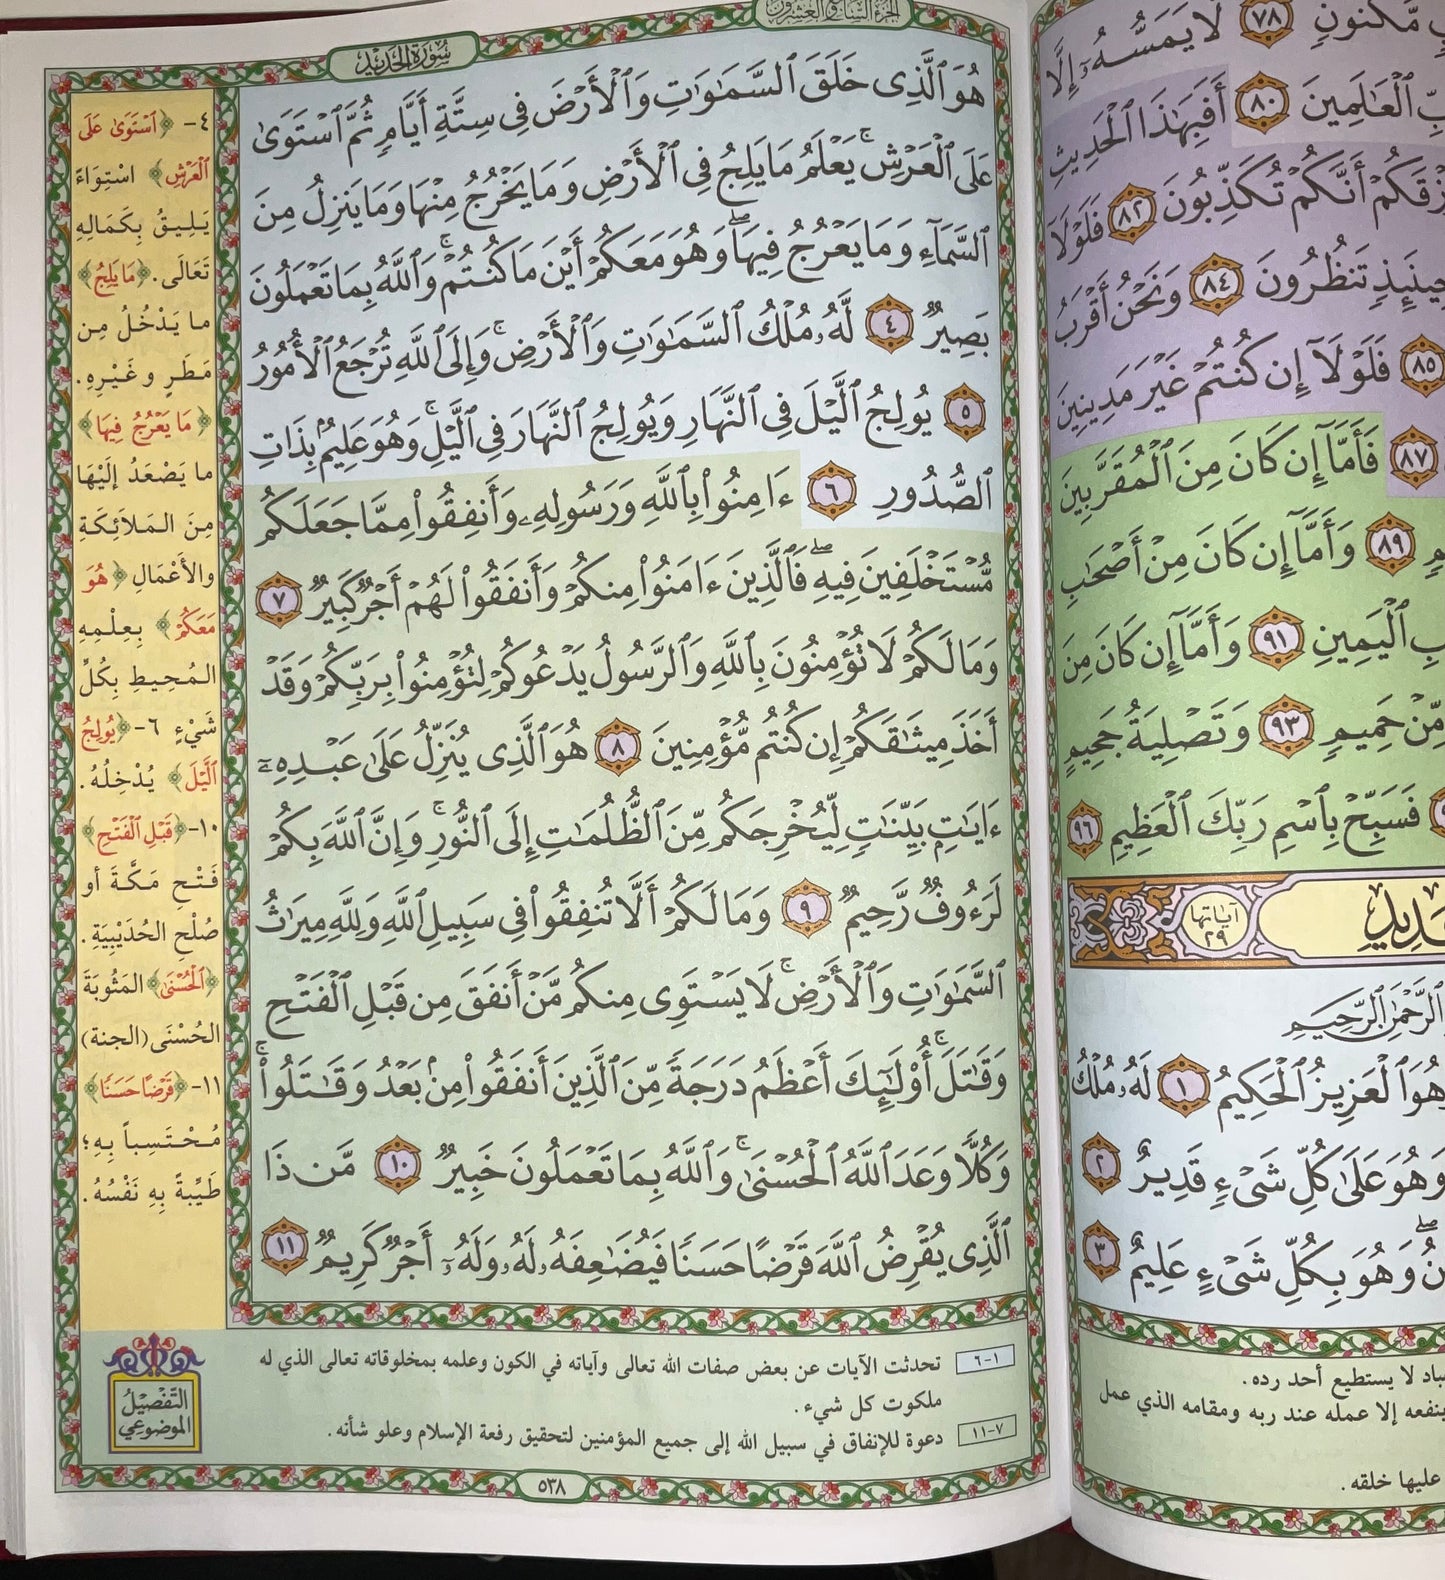 سُورَةُ الحَدِيدِ
هُوَ ٱلَّذِى خَلَقَ ٱلسَّمَٰوَٰتِ وَٱلْأَرْضَ فِى سِتَّةِ أَيَّامٍ ثُمَّ ٱسْتَوَىٰ
عَلَى ٱلْعَرْشِ ۚ يَعْلَمُ مَا يَلِجُ فِى ٱلْأَرْضِ وَمَا يَخْرُجُ مِنْهَا وَمَا يَنزِلُ مِنَ
ٱلسَّمَآءِ وَمَا يَعْرُجُ فِيهَا ۖ وَهُوَ مَعَكُمْ أَيْنَ مَا كُنتُمْ ۚ وَٱللَّهُ بِمَا تَعْمَلُونَ
بَصِيرٌ ٤ لَّهُۥ مُلْكُ ٱلسَّمَٰوَٰتِ وَٱلْأَرْضِ ۚ وَإِلَى ٱللَّهِ تُرْجَعُ ٱلْأُمُورُ
٥ يُولِجُ ٱلَّيْلَ فِى ٱلنَّهَارِ وَيُولِجُ ٱلنَّهَارَ فِى ٱلَّيْلِ ۚ وَهُوَ عَلِيمٌۢ بِذَاتِ
ٱلصُّدُورِ ٦ ءَامِنُوا۟ بِٱللَّهِ وَرَسُولِهِۦ وَأَنفِقُوا۟ مِمَّا جَعَلَكُم
مُّسْتَخْلَفِينَ فِيهِ ۖ فَٱلَّذِينَ ءَامَنُوا۟ مِنكُمْ وَأَنفَقُوا۟ لَهُمْ أَجْرٌ كَبِيرٌ ٧
وَمَا لَكُمْ لَا تُؤْمِنُونَ بِٱللَّهِ وَٱلرَّسُولُ يَدْعُوكُمْ لِتُؤْمِنُوا۟ بِرَبِّكُمْ وَقَدْ
أَخَذَ مِيثَٰقَكُمْ إِن كُنتُم مُّؤْمِنِينَ ٨ هُوَ ٱلَّذِى يُنَزِّلُ عَلَىٰ عَبْدِهِۦٓ
ءَايَٰتٍۭ بَيِّنَٰتٍ لِّيُخْرِجَكُم مِّنَ ٱلظُّلُمَٰتِ إِلَى ٱلنُّورِ ۚ وَإِنَّ ٱللَّهَ بِكُمْ
لَرَءُوفٌ رَّحِيمٌ ٩ وَمَا لَكُمْ أَلَّا تُنفِقُوا۟ فِى سَبِيلِ ٱللَّهِ وَلِلَّهِ مِيرَٰثُ
ٱلسَّمَٰوَٰتِ وَٱلْأَرْضِ ۚ لَا يَسْتَوِى مِنكُم مَّنْ أَنفَقَ مِن قَبْلِ ٱلْفَتْحِ
وَقَٰتَلَ ۚ أُو۟لَٰٓئِكَ أَعْظَمُ دَرَجَةً مِّنَ ٱلَّذِينَ أَنفَقُوا۟ مِنۢ بَعْدُ وَقَٰتَلُوا۟ ۚ
وَكُلًّا وَعَدَ ٱللَّهُ ٱلْحُسْنَىٰ ۚ وَٱللَّهُ بِمَا تَعْمَلُونَ خَبِيرٌ ١٠ مَّن ذَا
ٱلَّذِى يُقْرِضُ ٱللَّهَ قَرْضًا حَسَنًا فَيُضَٰعِفَهُۥ لَهُۥ وَلَهُۥٓ أَجْرٌ كَرِيمٌ ١١
٤- ﴿ٱسْتَوَىٰ عَلَى
ٱلْعَرْشِ﴾ اسْتِوَاءً
يَـلِيـقُ بِكَمَالِهِ
تَعَالَى. ﴿مَا يَلِجُ﴾
ما يَدْخُلُ مِن
مَطَرٍ وغَيْرِهِ.
﴿مَا يَعْرُجُ فِيهَا﴾
ما يَصْعَدُ إِلَيْهَا
مِنَ المَلاَئِكَةِ
والأَعْمَالِ ﴿هُوَ
مَعَكُمْ﴾ بِعِلْمِهِ
المُحِيطِ بِكُلِّ
شَيْءٍ ٦- ﴿يُولِجُ
ٱلَّيْلَ﴾ يُدْخِلُهُ.
١٠- ﴿قَبْلِ ٱلْفَتْحِ﴾
فَتْحِ مَكَّةَ أو
صُلْحِ الحُدَيْبِيَةِ.
﴿ٱلْحُسْنَىٰ﴾ المَثُوبَةَ
الحُسْنَى (الجنة)
١١- ﴿قَرْضًا حَسَنًا﴾
مُحْتَسِباً بِهِ؛
طَيِّبةً بِهِ نَفْسُهُ.
التَّفْصِيْلُ
الموضوعي
١-٦ تحدثت الآيات عن بعض صفات الله تعالى وآياته في الكون وعلمه بمخلوقاته تعالى الذي له
ملكوت كل شيء.
٧-١١ دعوة للإنفاق في سبيل الله إلى جميع المؤمنين لتحقيق رفعة الإسلام وعلو شأنه.
٥٣٨
مَّكْنُونٍ ٧٨ لَّا يَمَسُّهُۥٓ إِلَّا
ٱلْعَٰلَمِينَ ٨٠ أَفَبِهَٰذَا ٱلْحَدِيثِ
أَنَّكُمْ تُكَذِّبُونَ ٨٢ فَلَوْلَآ
حِينَئِذٍ تَنظُرُونَ ٨٤ وَنَحْنُ أَقْرَبُ
٨٥ فَلَوْلَآ إِن كُنتُمْ غَيْرَ مَدِينِينَ
٨٧ فَأَمَّآ إِن كَانَ مِنَ ٱلْمُقَرَّبِينَ
٨٩ وَأَمَّآ إِن كَانَ مِنْ أَصْحَٰبِ
ٱلْيَمِينِ ٩١ وَأَمَّآ إِن كَانَ مِنَ
مِّنْ حَمِيمٍ ٩٣ وَتَصْلِيَةُ جَحِيمٍ
فَسَبِّحْ بِٱسْمِ رَبِّكَ ٱلْعَظِيمِ ٩٦
آيَاتها
٢٩
ٱلرَّحْمَٰنِ ٱلرَّحِيمِ
وَهُوَ ٱلْعَزِيزُ ٱلْحَكِيمُ ١ لَهُۥ مُلْكُ
وَهُوَ عَلَىٰ كُلِّ شَىْءٍ قَدِيرٌ ٢
وَهُوَ بِكُلِّ شَىْءٍ عَلِيمٌ ٣
لا يستطيع أحد رده.
ينفعه إلا عمله عند ربه ومقامه الذي عمل
عليها خلقه.